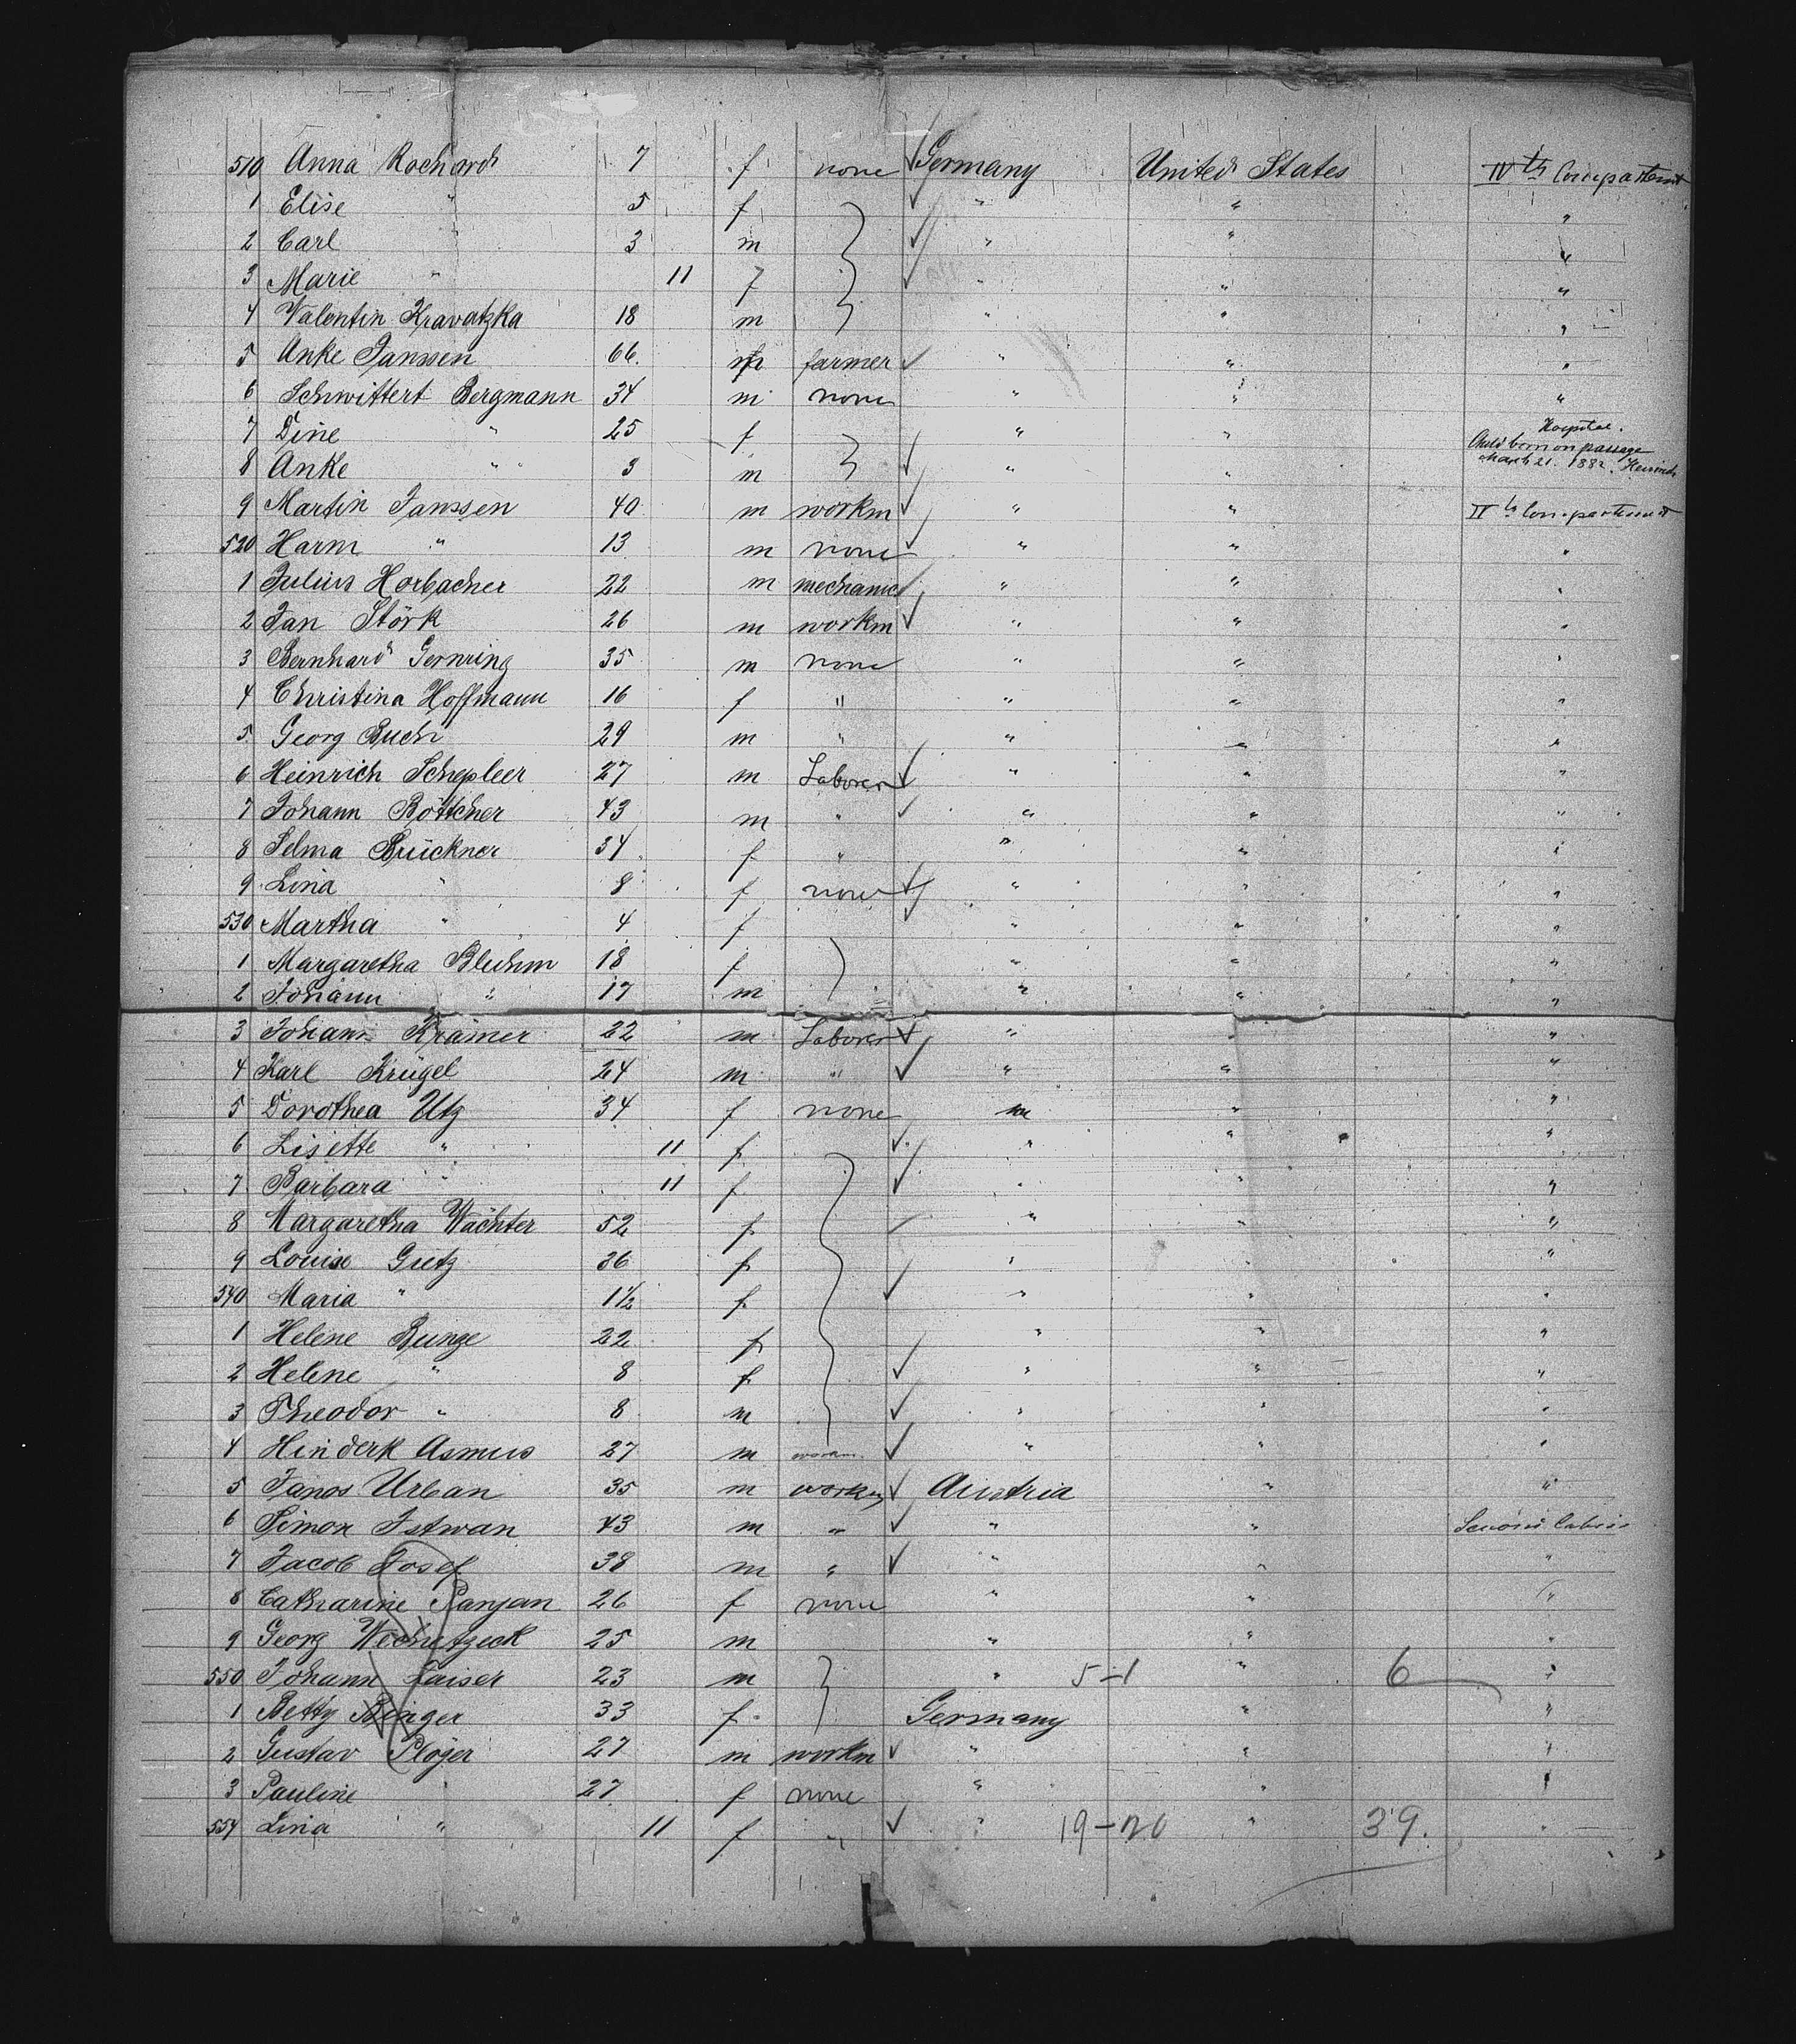 510 Anna Rochard 7 f none Germany United States IVth Compartement
1 Elise " 5 f " " "
2 Carl " 3 m " " "
3 Marie " 11 f " " "
4 Valentin Kravatzka 18 m " " "
5 Anke Janssen 66. farmer " " "
6 Schwittert Bergmann 34 m none " " "
7 Dine " 25 f " " Hospital.
8 Anke " 3 m " " Child born on passage March 21. 1882. Heinrich
9 Martin Janssen 40 m workm " " IVth Compartement
520 Harm " 13 m none " " "
1 Julius Horbacher 22 m mechanic " " "
2 Jan Störk 26 m workm " " "
3 Bernhard Gernring 35 m none " " "
4 Christina Hoffmann 16 f " " " "
5 Georg Buch 29 m " " " "
6 Heinrich Schepleer 27 m Laborer " " "
7 Johann Böttcher 43 m " " " "
8 Selma Brückner 34 f " " " "
9 Lina " 8 f none " " "
530 Martha " 4 f " " "
1 Margaretha Bluhm 18 f " " "
2 Johann " 17 m " " "
3 Johann Krämer 22 m Laborer " " "
4 Karl Krügel 24 m " " " "
5 Dorothea Utz 34 f none " " "
6 Lisette " 11 f " " "
7 Barbara " 11 f " " "
8 Margaretha Wächter 52 f " " "
9 Louise Gietz 36 f " " "
540 Maria " 1½ f " " "
1 Helene Bunge 22 f " " "
2 Helene " 8 f " " "
3 Theodor " 8 m " " "
4 Hinderk Asmus 27 m workm " " "
5 Janos Urban 35 m workm Austria " "
6 Simon Istwan 43 m " " " Second Cabin
7 Jacob Josef 38 m " " " "
8 Catharine Panjan 26 f none " " "
9 Georg 25 m " " "
550 Johann Kaiser 23 m " 5-1 " 6 "
1 Betty Binger 33 f Germany " "
2 Gustav Plöger 27 m workm " " "
3 Pauline " 27 f none " " "
554 Lina " 11 f " " 19-20 " 39. "